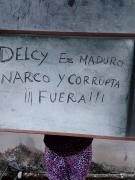 DELCY Es MADURO
NARCO Y CORRUPTA
¡¡¡ FUERA!!!